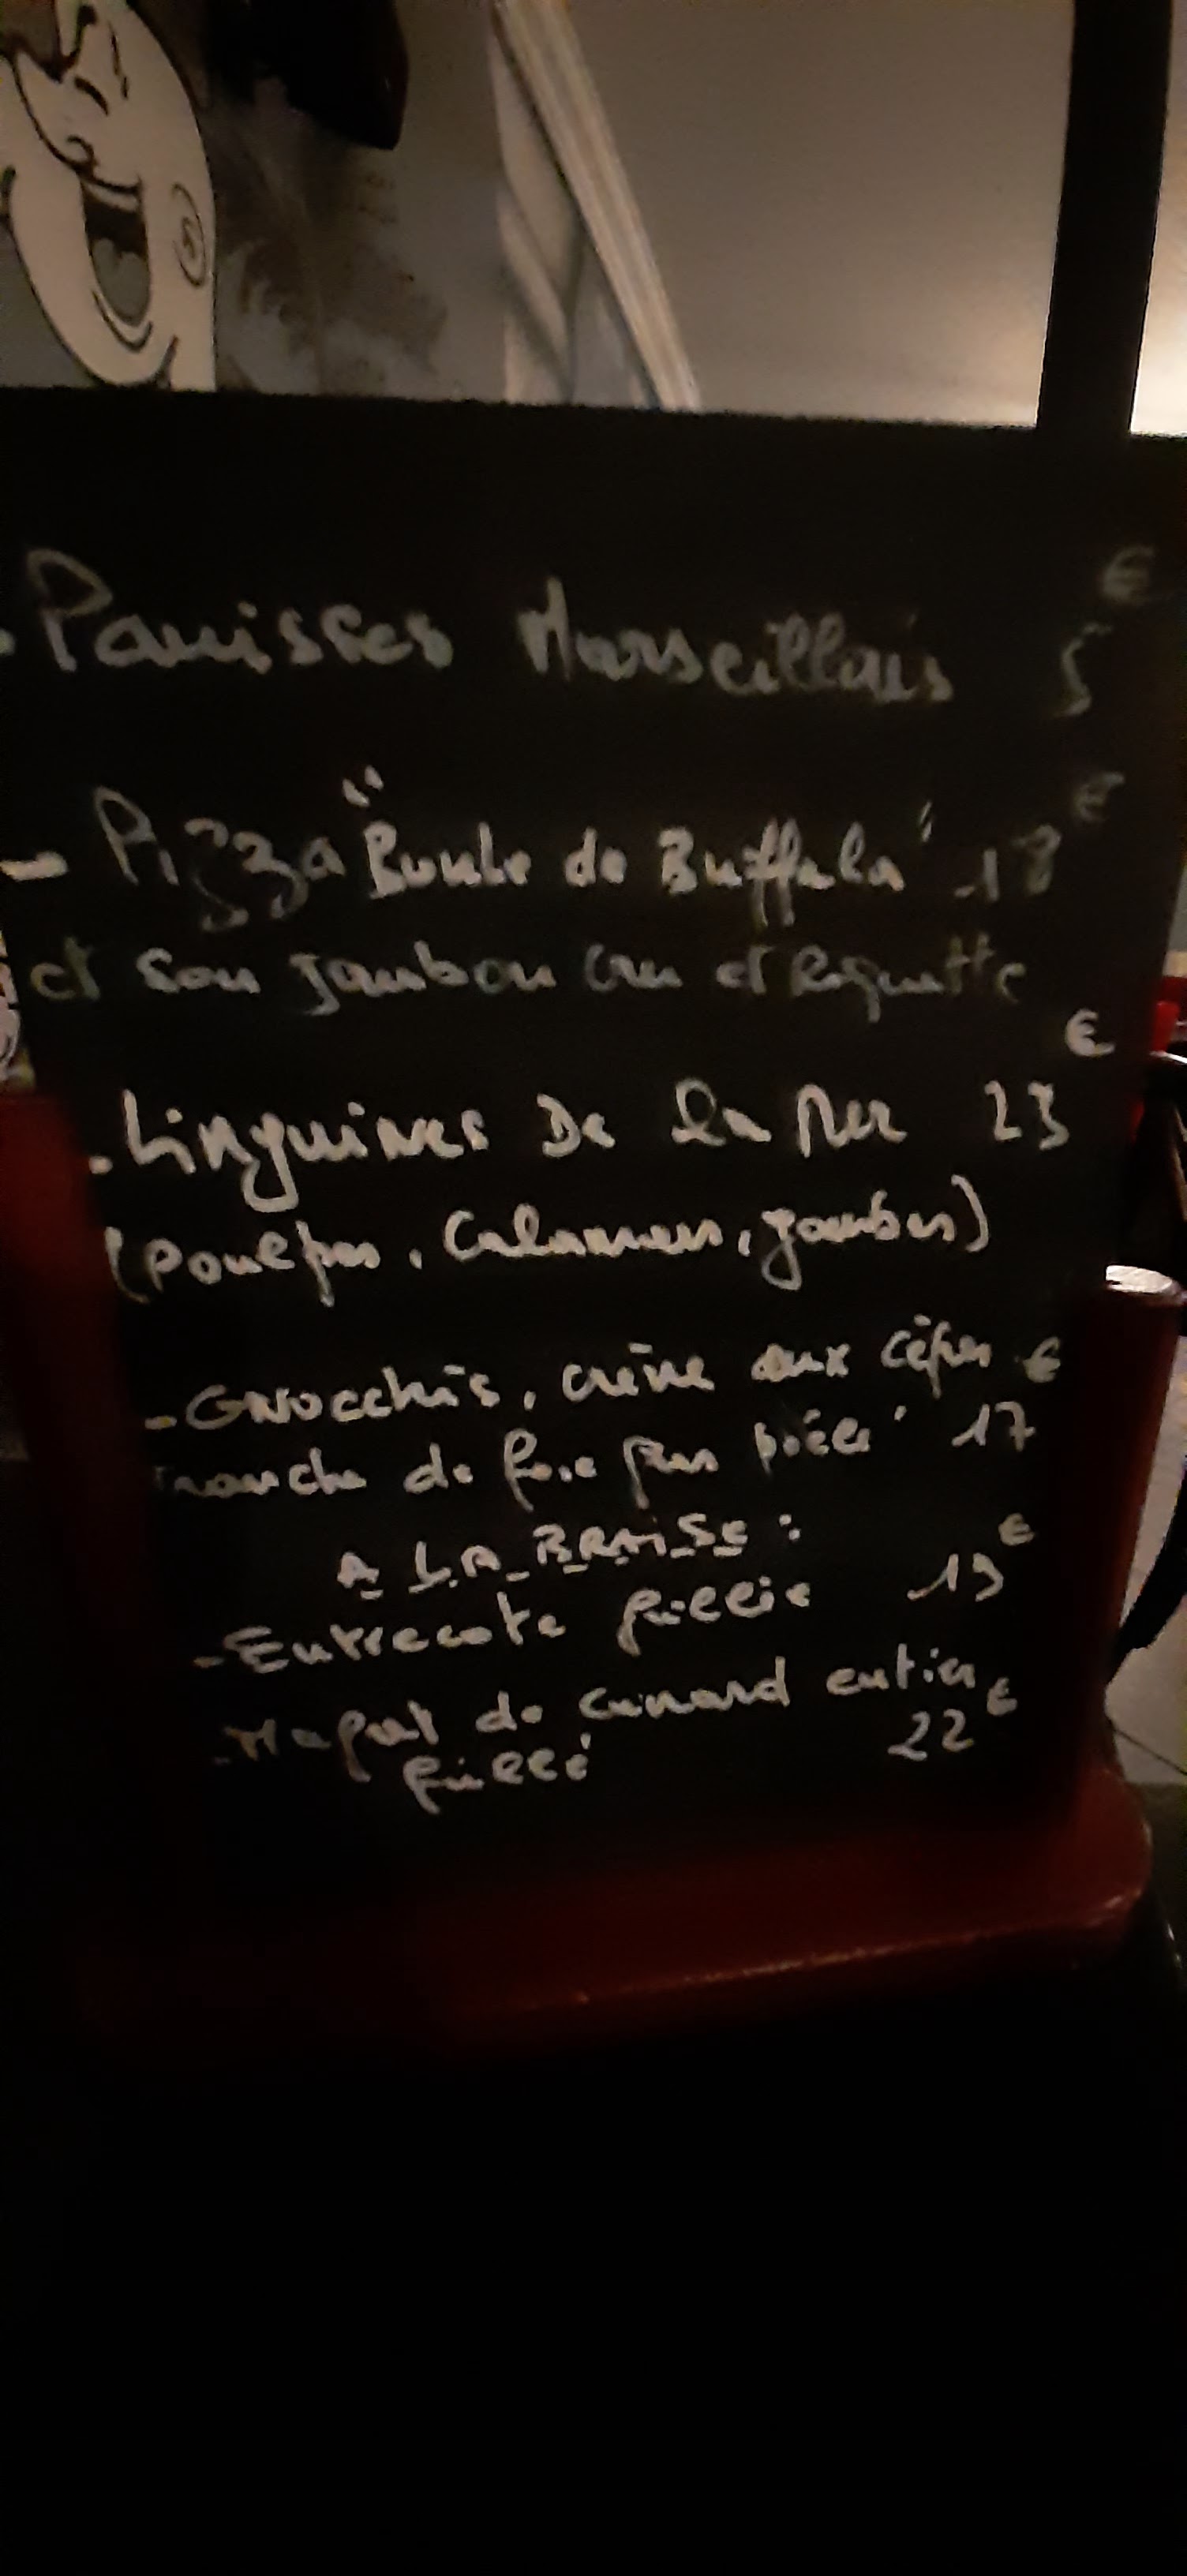 - Panisses Marseillais 5€
- Pizza "Boule de Buffala" 18€
et son jambon cru et Roquette
- Linguines De la Mer 23€
(Poulpes, Calamars, gambas)
- GNocchis, crème aux cèpes €
Tranche de foie gras poélé 17
A LA BRAiSe:
- Entrecote grillée 19€
- Magret de canard entier €
grillé 22